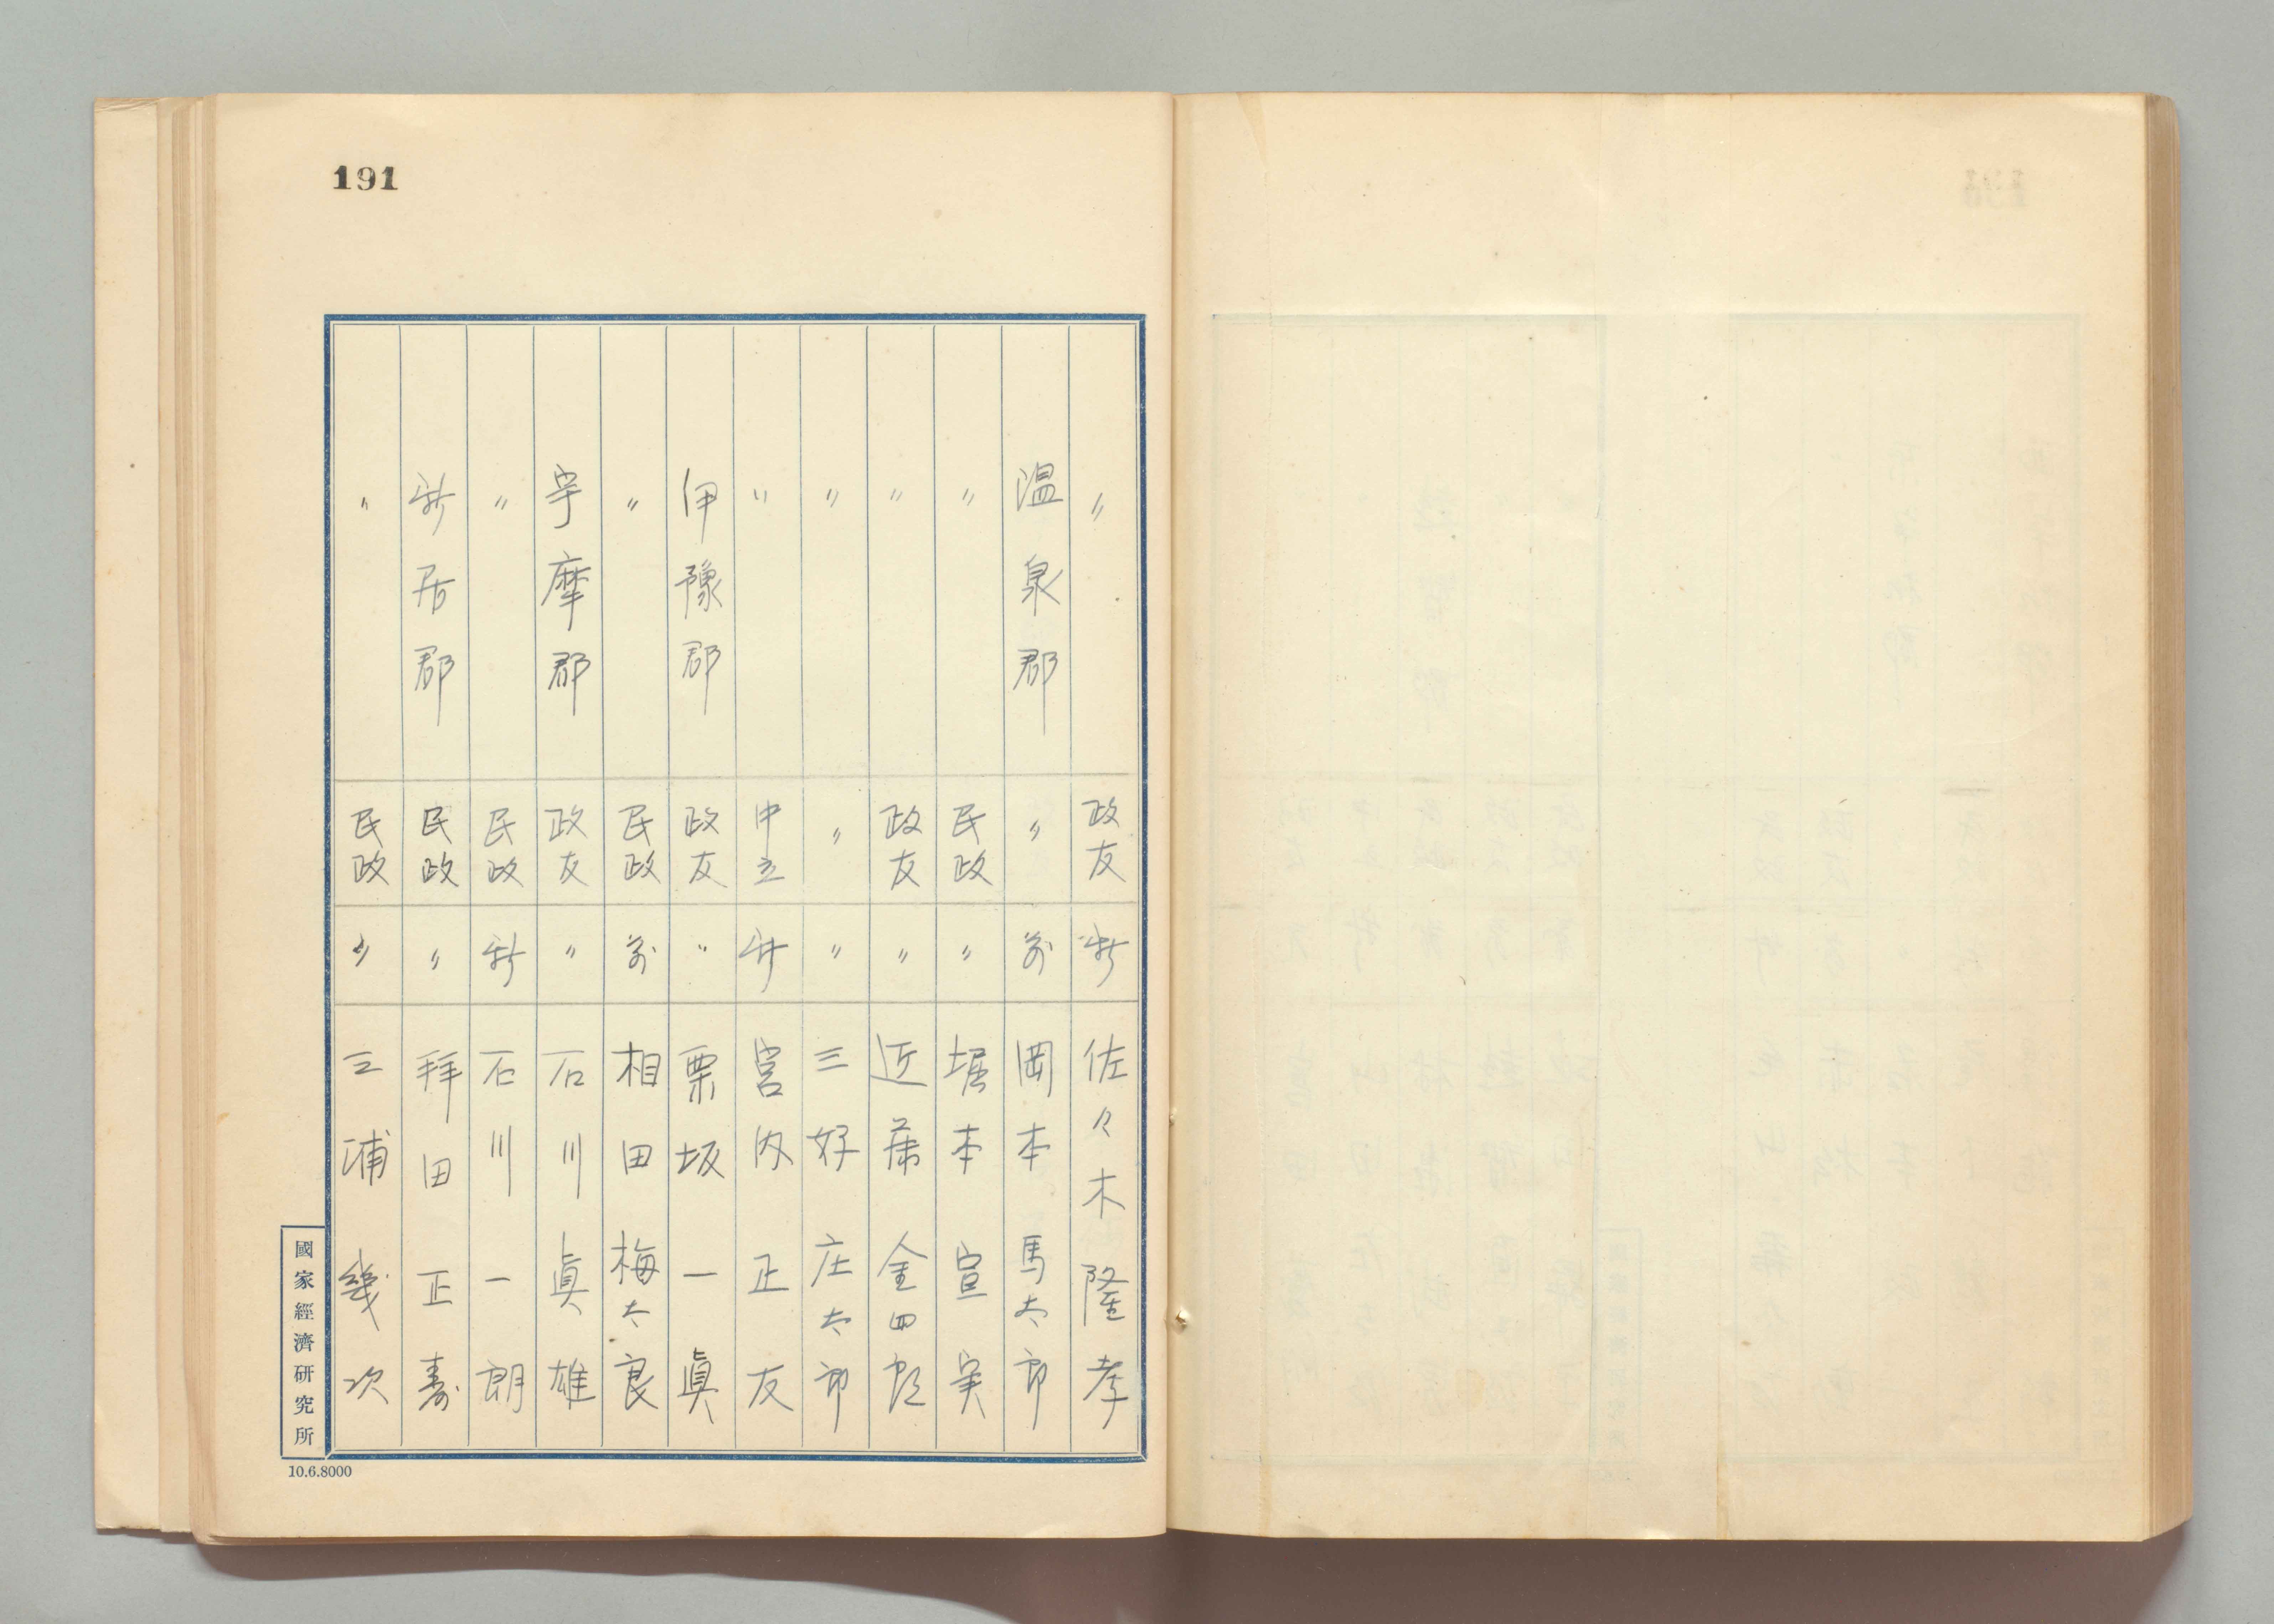 191
〃 政友 新 佐々木隆孝
温泉郡 〃 前 岡本馬太郎
〃 民政 〃 堀本宣実
〃 政友 〃 近藤金四郎
〃 〃 〃 三好庄太郎
〃 中立 新 宮内正友
伊豫郡 政友 〃 栗坂一眞
〃 民政 前 相田梅太良
宇摩郡 政友 〃 石川眞雄
〃 民政 新 石川一朗
新居郡 民政 〃 拜田正壽
〃 民政 〃 三浦幾次
國家經濟研究所
10.6.8000